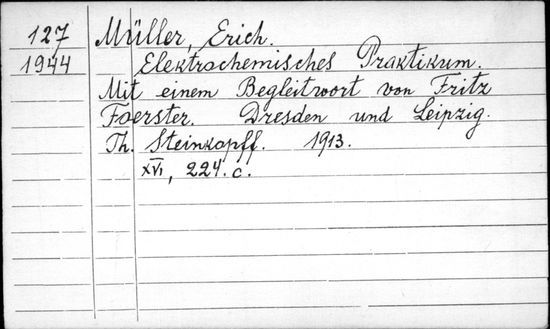 127 Müller, Erich.
1944 Elektrochemisches Praktikum.
Mit einem Begleitwort von Fritz
Foerster. Dresden und Leipzig.
Th. Steinkopff. 1913.
XVI, 224. c.